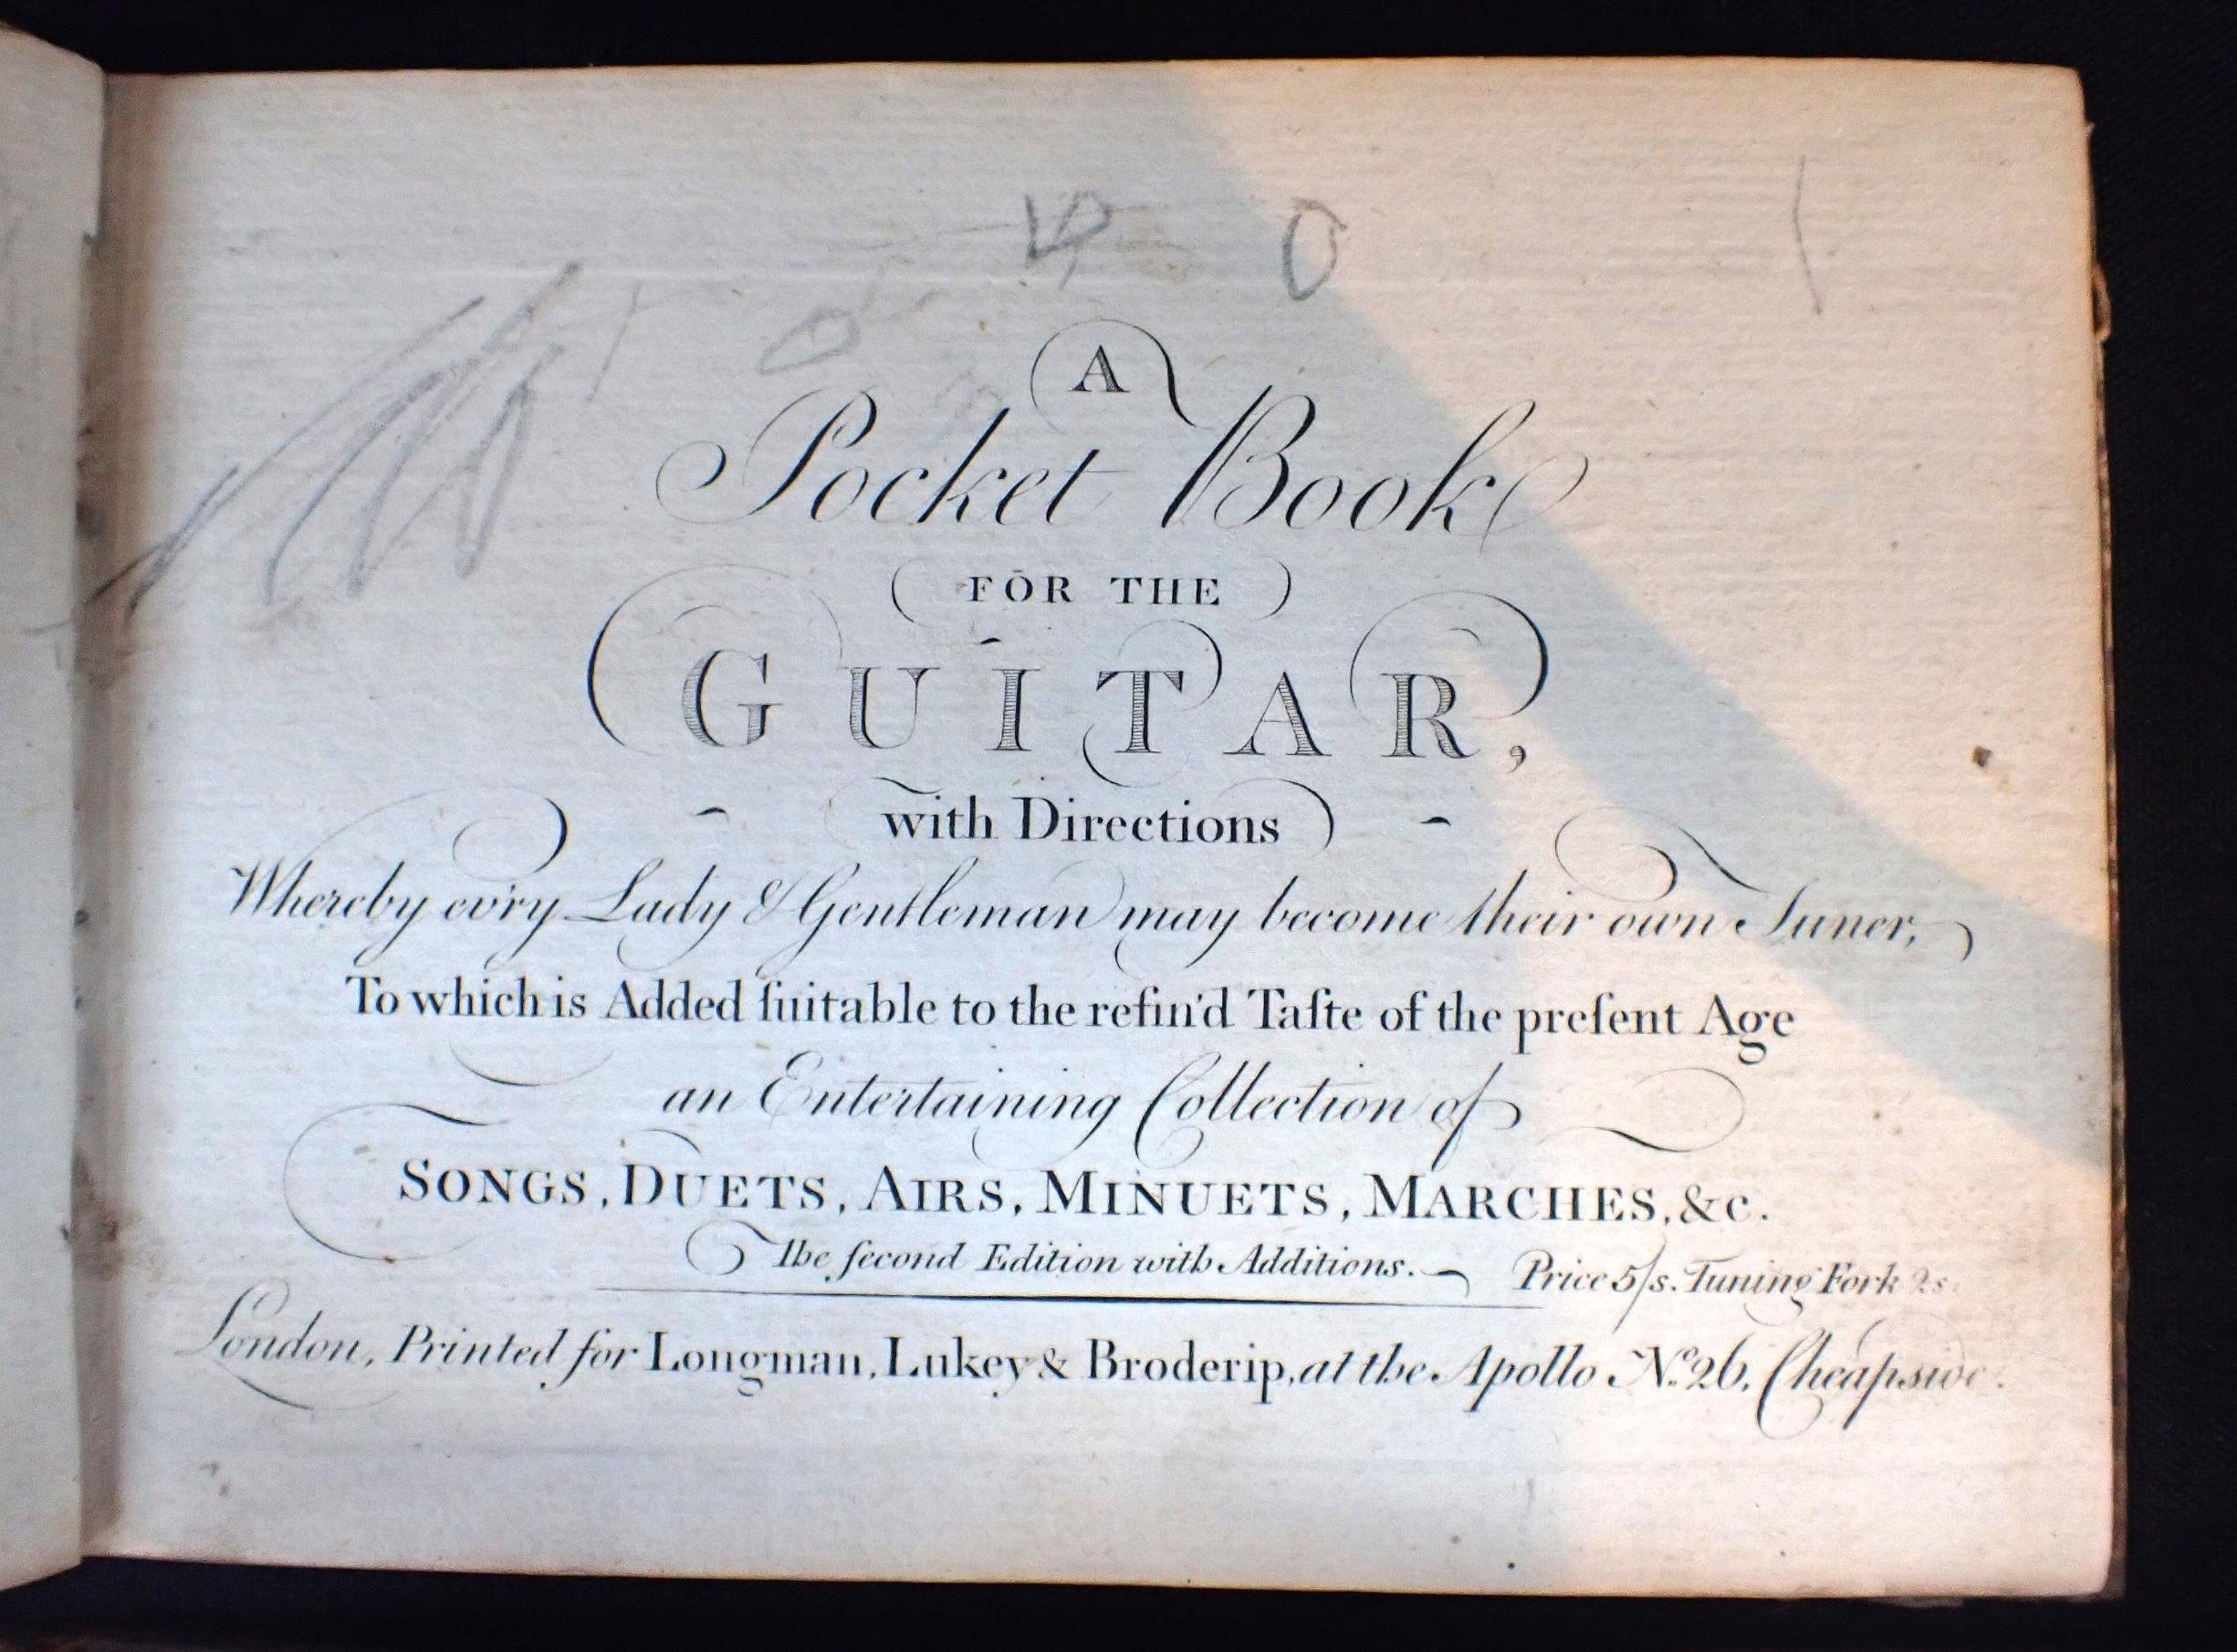 A
Pocket Book
FOR THE
GUITAR,
with Directions
Whereby ev'ry Lady & Gentleman may become their own Tuner,
To which is Added ſuitable to the refin'd Taſte of the preſent Age
an Entertaining Collection of
SONGS, DUETS, AIRS, MINUETS, MARCHES, &c.
The ſecond Edition with Additions. Price 5/s. Tuning Fork 2s.
London, Printed for Longman, Lukey & Broderip, at the Apollo No. 26, Cheapside.